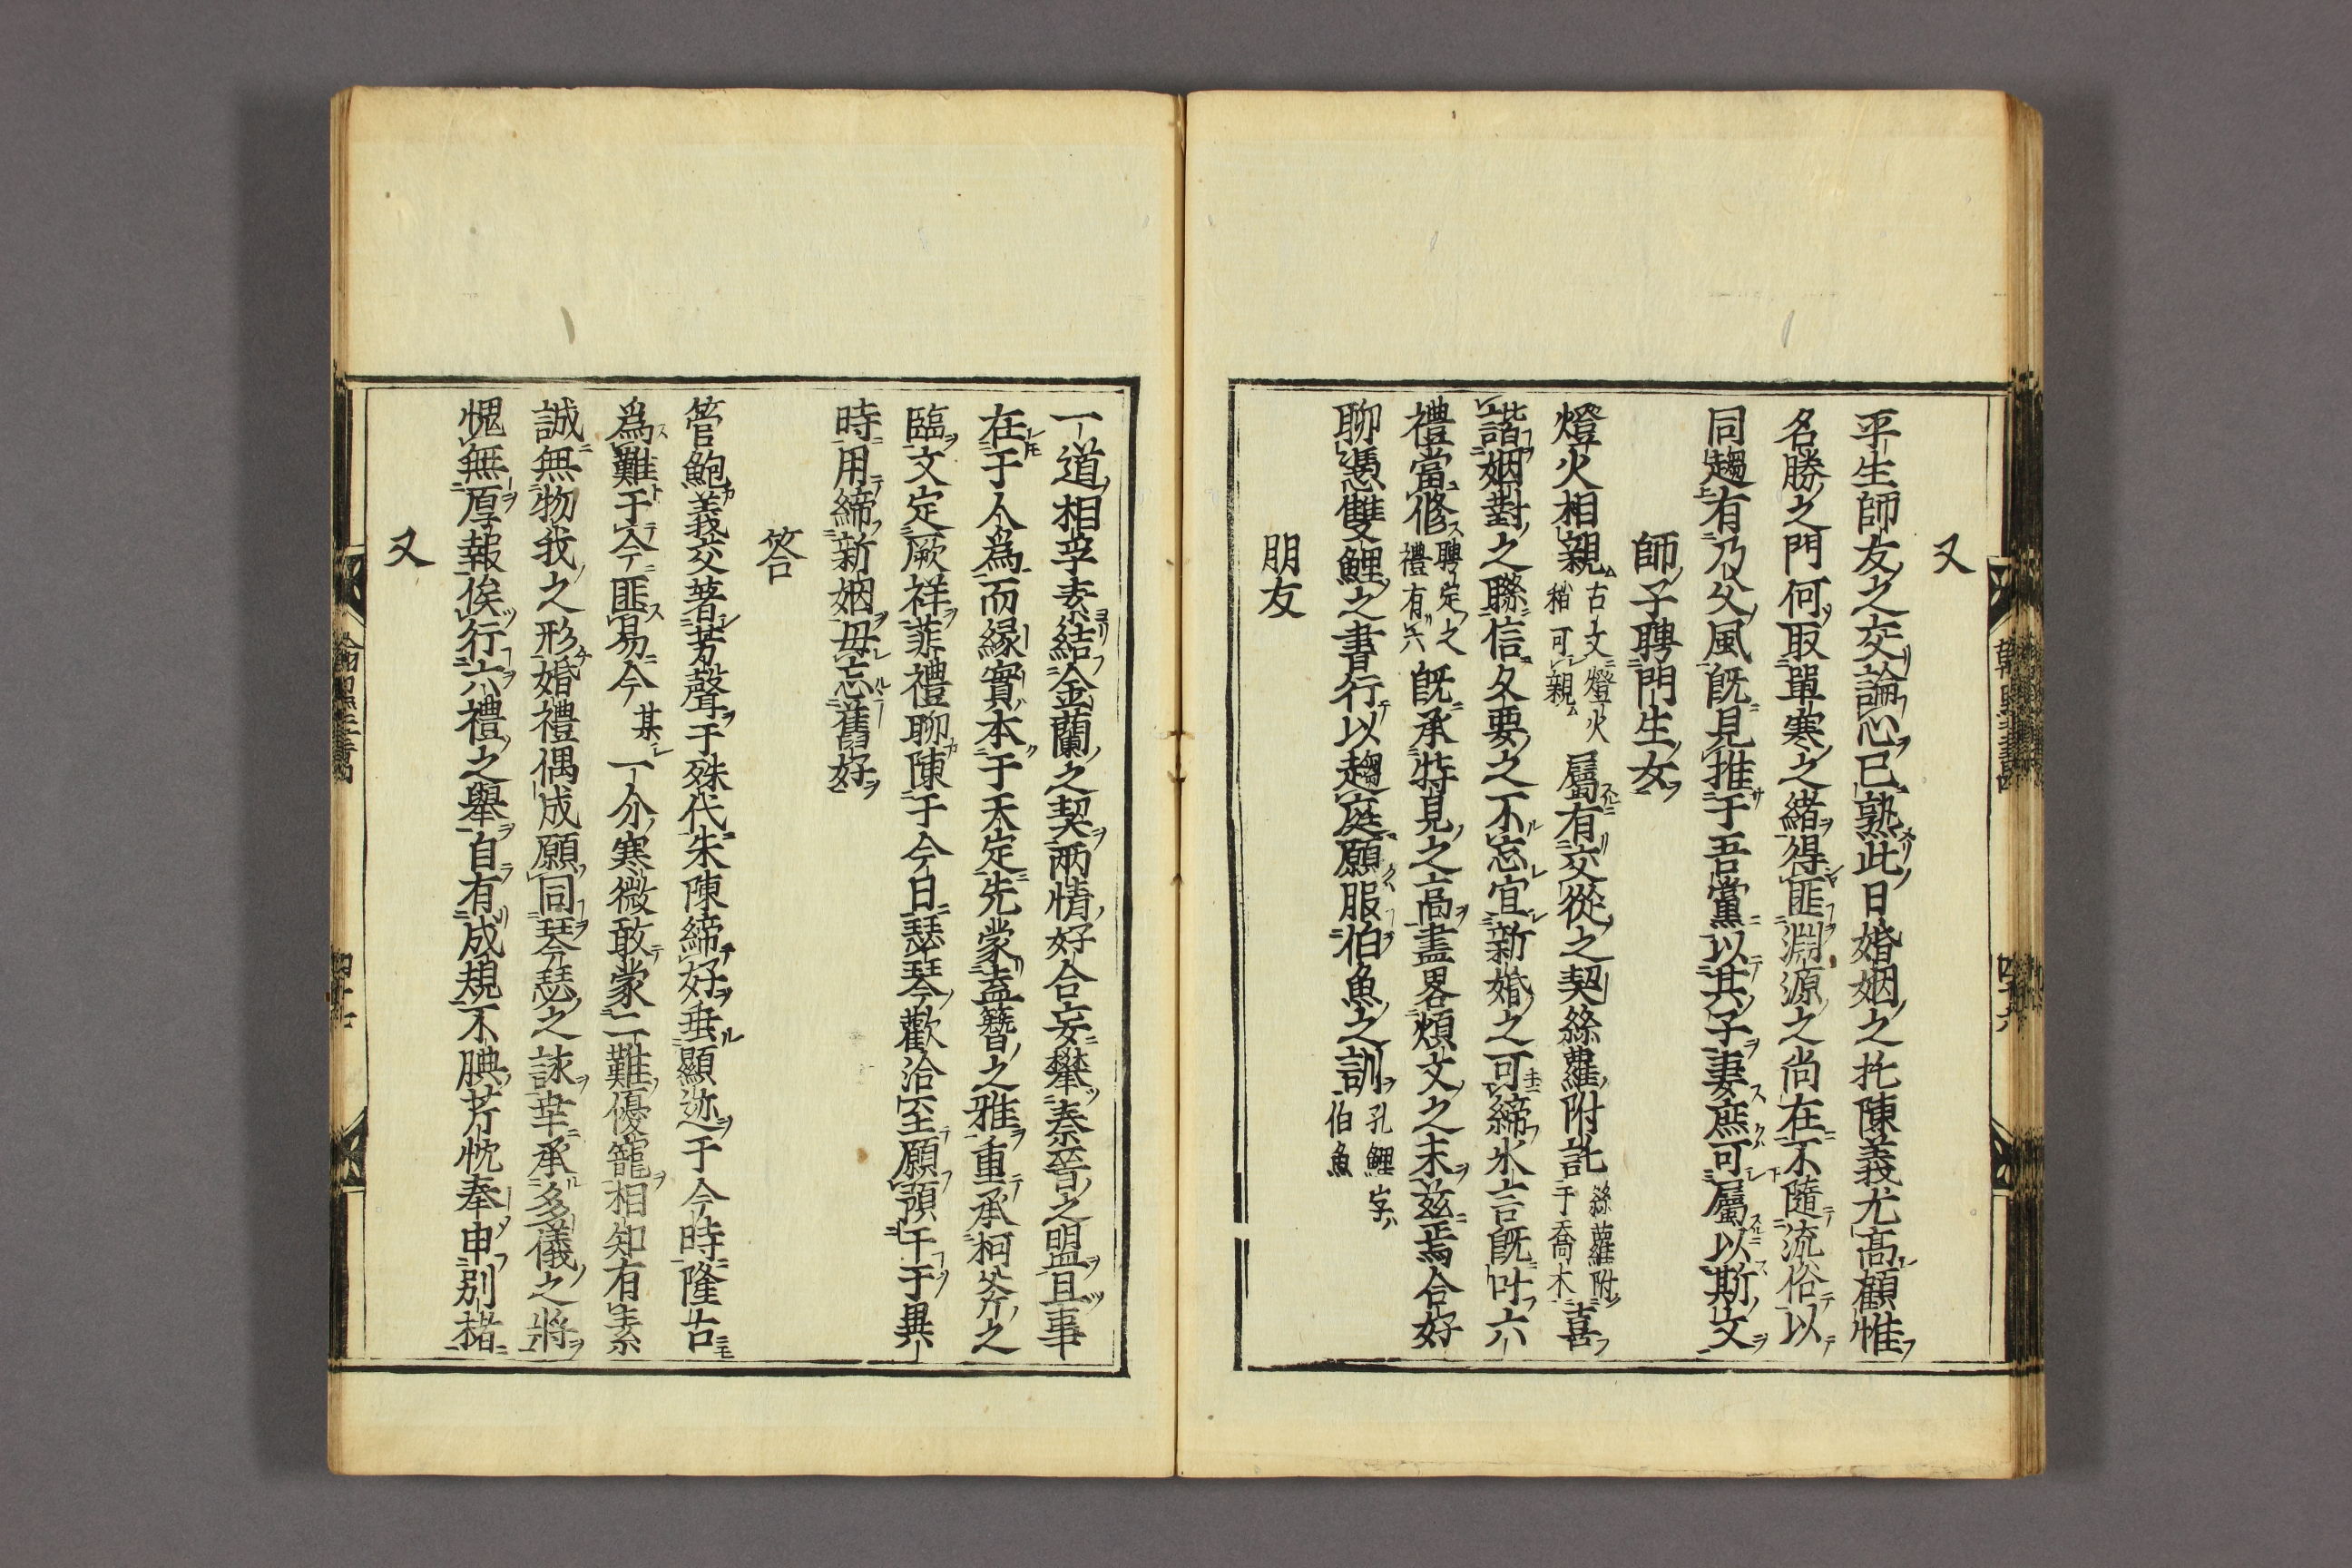 又
平生師友之交論心已熟此日婚姻之托陳義尤高顧惟
名勝之門何取單寒之緒得匪淵源之尚在不隨流俗以
同趨有乃父風既見推于吾黨以其子妻庶可屬以斯文
師子聘門生女
燈火相親古文燈火稍可親屬有交從之契絲蘿附託絲蘿附于喬木喜
諧姻對之聯信久要之不忘宜新婚之可締氷言既叶六
禮當修聘定之禮有六既承特見之高盡畧煩文之末茲焉合好
聊憑雙鯉之書行以趨庭願服伯魚之訓孔鯉字伯魚
朋友
一道相孚素結金蘭之契兩情好合妄攀秦晉之盟且事
在于人為而緣實本于天定先蒙盍簪之雅重承柯斧之
臨文定厥祥菲禮聊陳于今日瑟琴歡洽至願預于于異
時用締新姻毋忘舊好
答
管鮑義交著芳聲于殊代朱陳締好垂顯迹于今時隆古
為難于今匪易今某一介寒微敢蒙二難優寵相知有素
誠無物我之形婚禮偶成願同琴瑟之詠幸承多儀之將
愧無厚報俟行六禮之舉自有成規不腆芹忱奉申別楮
又